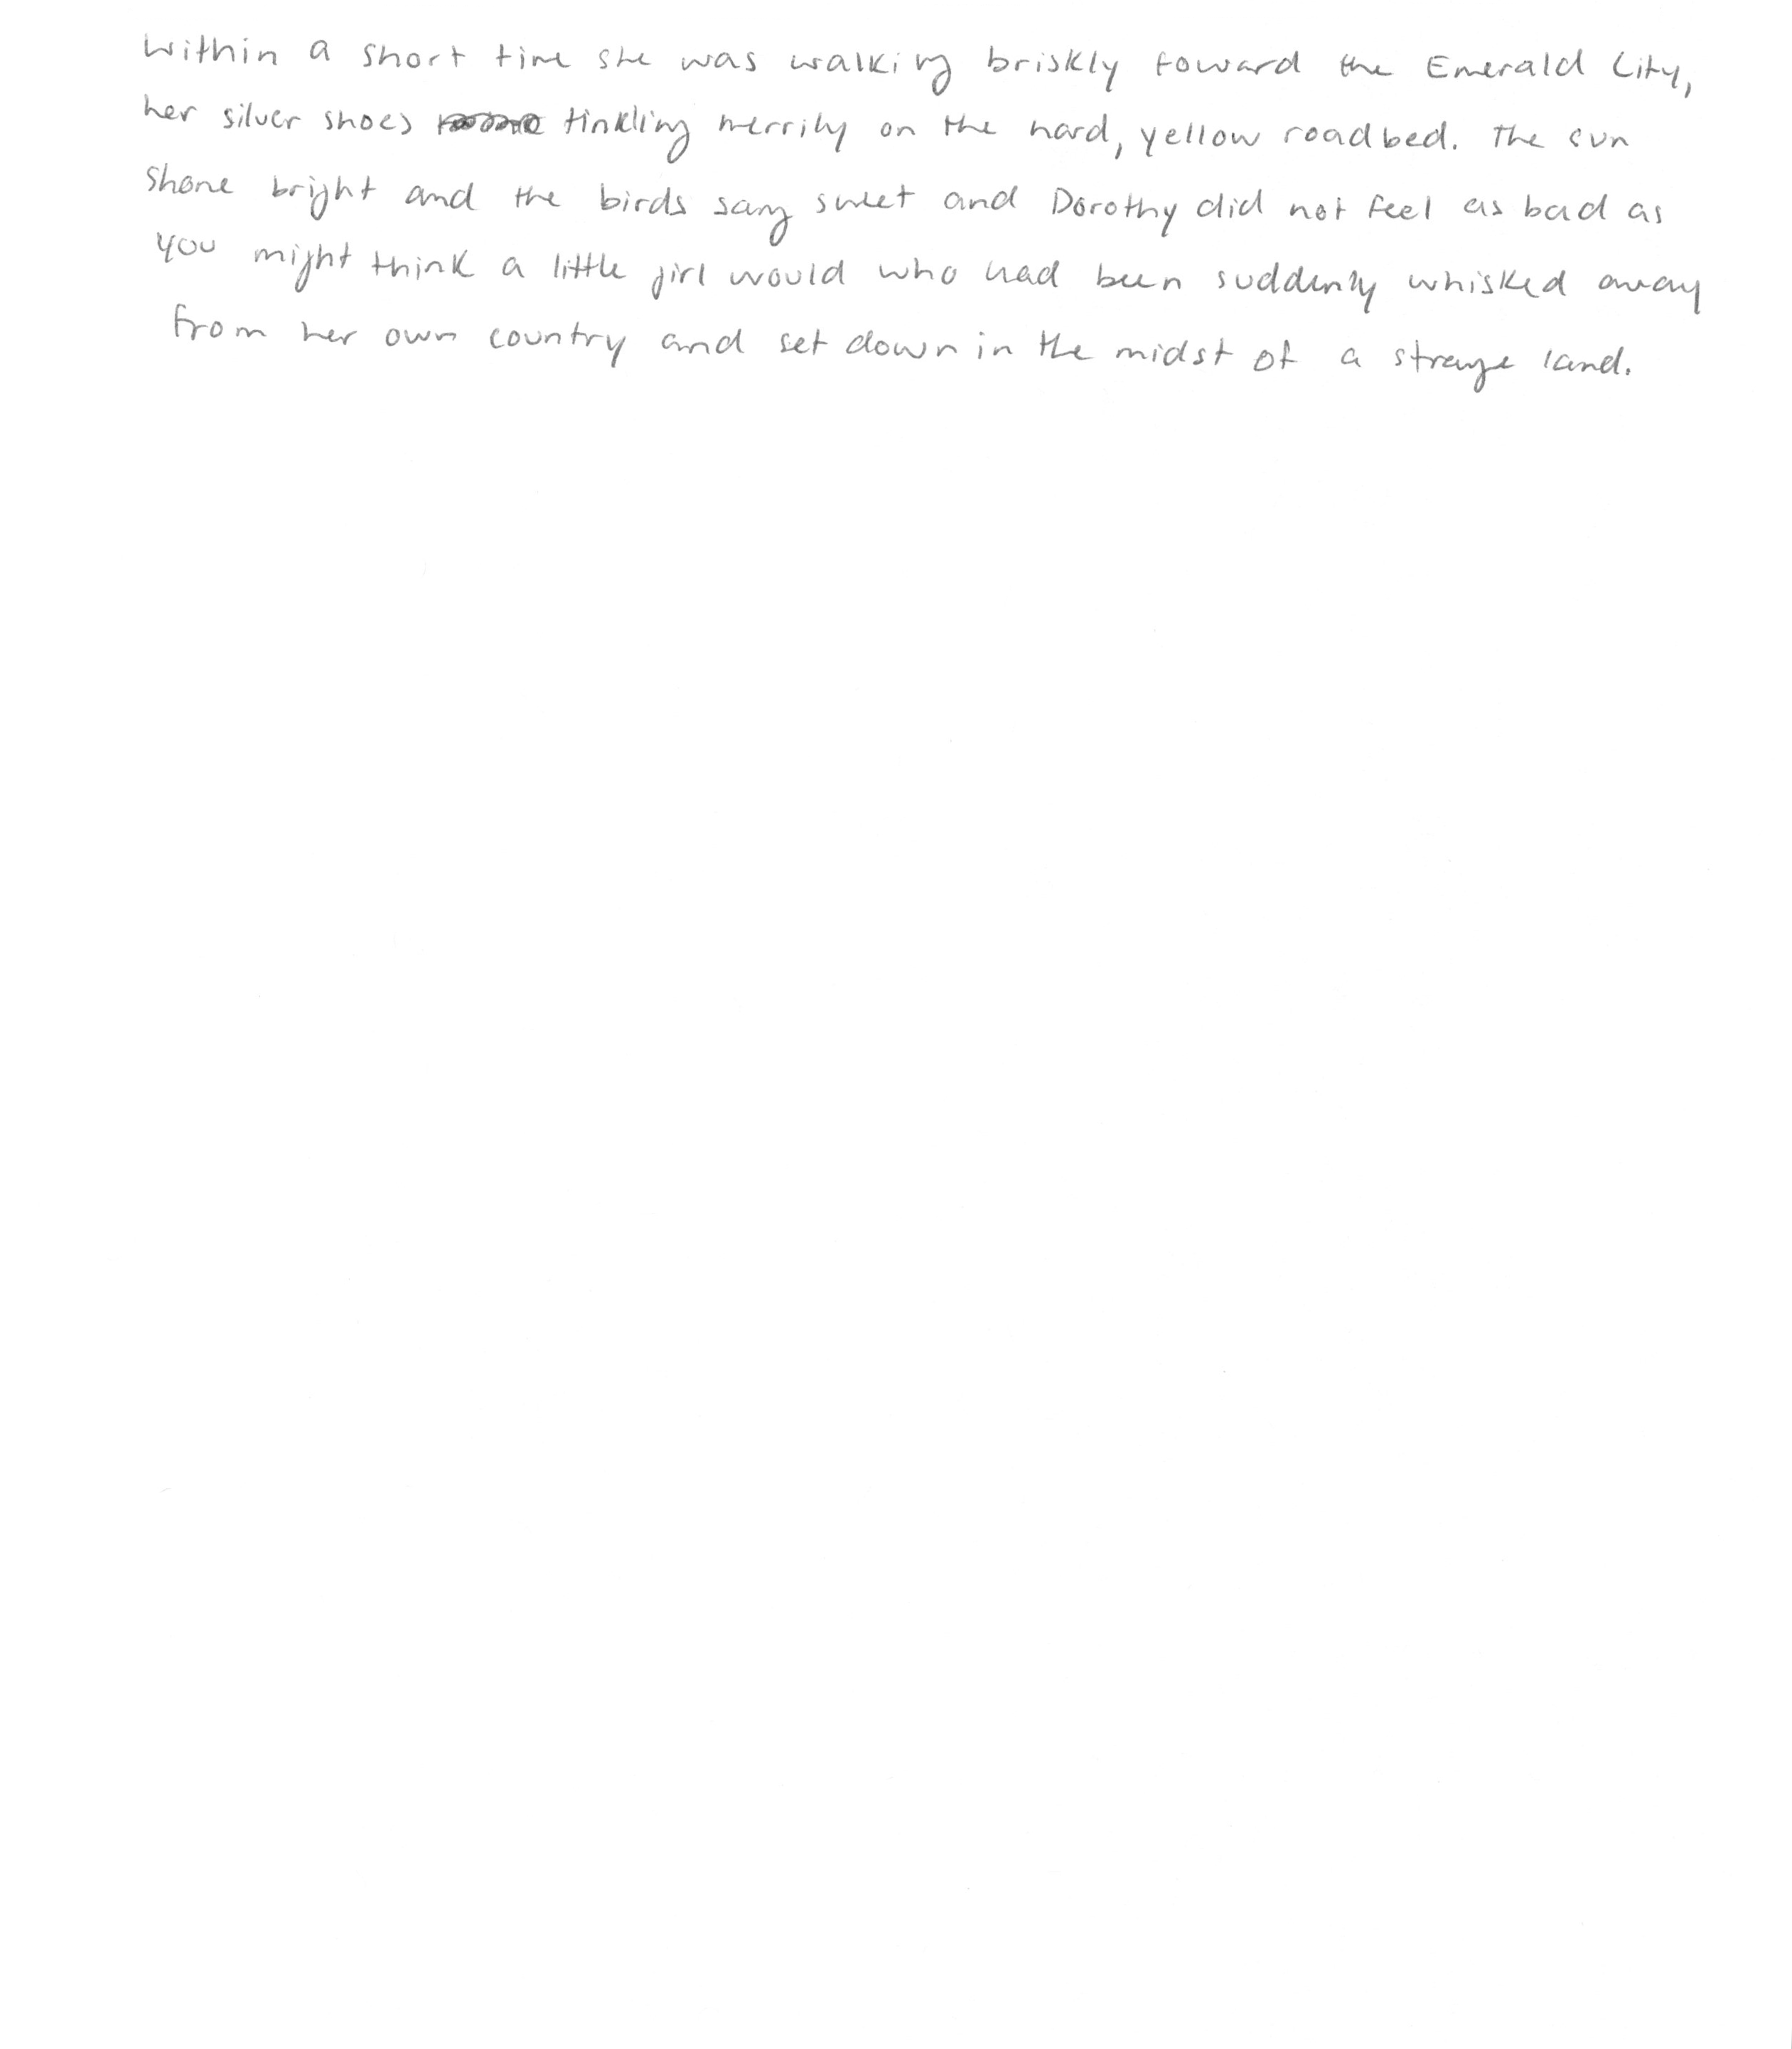 Within a short time she was walking briskly toward the Emerald City,
her silver shoes tinkling merrily on the hard, yellow roadbed. The sun
shone bright and the birds sang sweet and Dorothy did not feel as bad as
you might think a little girl would who had been suddenly whisked away
from her own country and set down in the midst of a strange land.